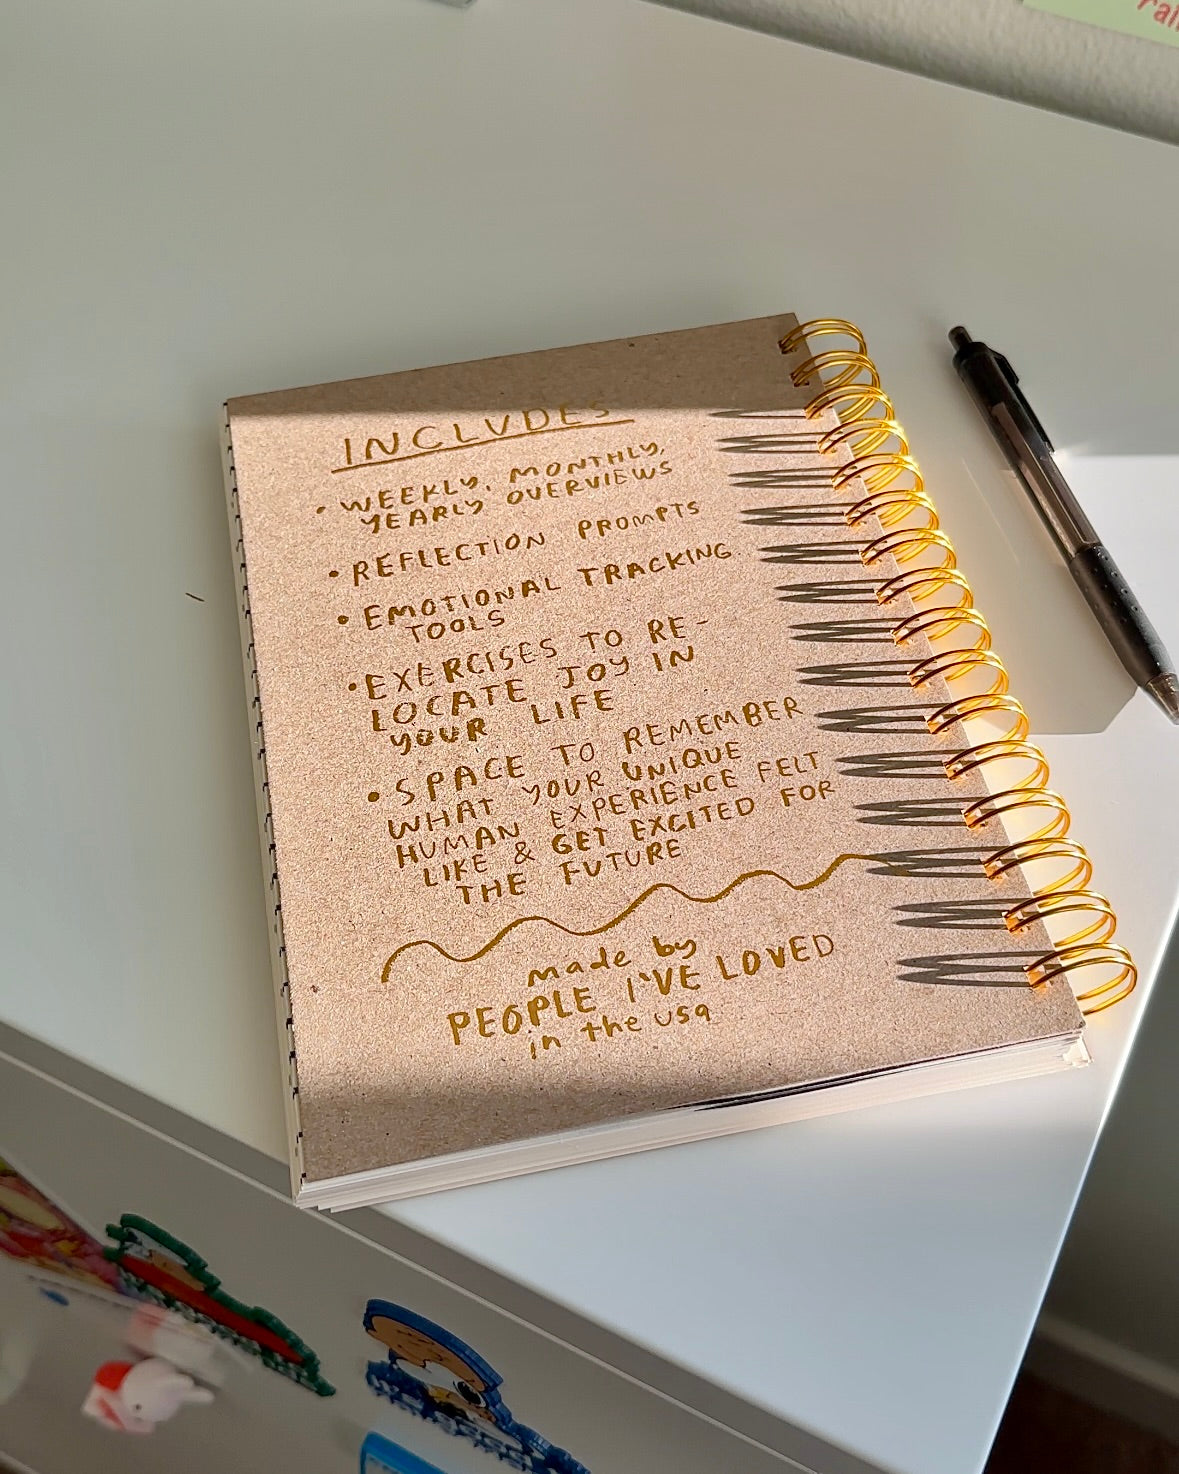 INCLUDES
• WEEKLY, MONTHLY,
YEARLY OVERVIEWS
• REFLECTION PROMPTS
• EMOTIONAL TRACKING
TOOLS
• EXERCISES TO RE-
LOCATE JOY IN
YOUR LIFE
• SPACE TO REMEMBER
WHAT YOUR UNIQUE
HUMAN EXPERIENCE FELT
LIKE & GET EXCITED FOR
THE FUTURE
made by
PEOPLE I'VE LOVED
in the usa